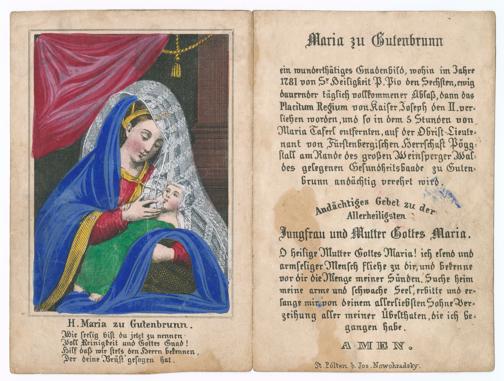 H. Maria zu Gutenbrunn.
Wie seelig bist du jetzt zu nennen
Voll Reinigkeit und Gottes Gnad!
Hilf daß wir stets den Herrn bekennen,
Der deine Brüst gesogen hat.
Maria zu Gutenbrunn
ein wunderthätiges Gnadenbild, wohin im Jahre
1781 von Sr Heiligkeit P. Pio den Sechsten, ewig
dauernder täglich vollkommener Ablaß, dann das
Placitum Regium von Kaiser Joseph den II. ver-
liehen worden, und so in dem 5 Stunden von
Maria Taferl entfernten, auf der Obrist-Lieute-
nant von Fürstenbergischen Herrschaft Pögg-
stall am Rande des großen Weinsperger Wal-
des gelegenen Gesundheitsbade zu Guten-
brunn andächtig verehrt wird.
Andächtiges Gebet zu der
Allerheiligsten
Jungfrau und Mutter Gottes Maria.
O heilige Mutter Gottes Maria! ich elend und
armseliger Mensch fliehe zu dir, und bekenne
vor dir die Menge meiner Sünden, Suche heim
meine arme und schwache Seel, erbitte und er-
lange mir von deinem allerliebsten Sohne Ver-
zeihung aller meiner Übelthaten, die ich be-
gangen habe.
AMEN.
St. Pölten b. Jos. Nowohradsky.